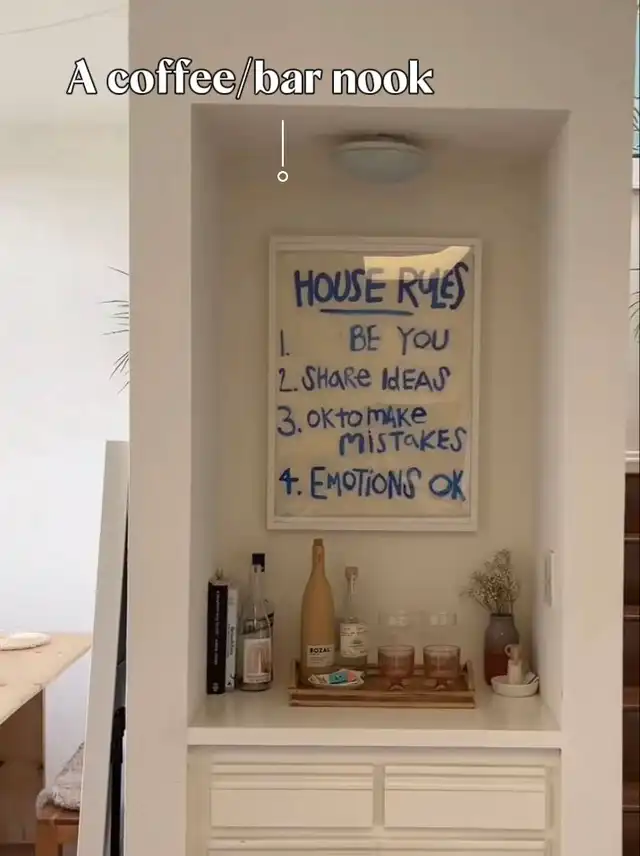 A coffee/bar nook
HOUSE RULES
1. BE YOU
2. SHaRe IdEAS
3. OK to mAKe
MiSTaKES
4. EMOTiONS OK
BOZAL